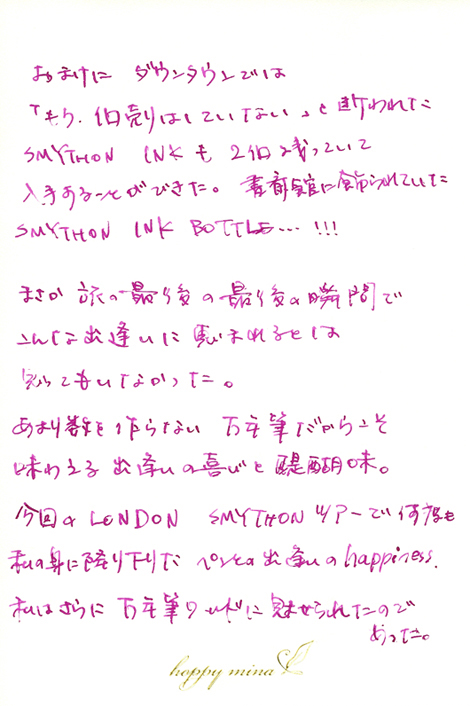 おまけに ダウンタウンでは
「もう、1個売りはしていない」と断われた
SMYTHON INKも2個残っていて
入手することができた。 書斎館に飾られていた
SMYTHON INK BOTTLE… !!!
まさか 旅の最後の最後の瞬間で
こんな出逢いに恵まれるとは
思ってもいなかった。
あまり数を作らない 万年筆だからこそ
味わえる 出逢いの喜びと醍醐味。
今回のLONDON SMYTHONツアーで何度も
私の身に降り下りた ペンとの出逢いのhappiness.
私はさらに 万年筆ワールドに魅せられたので
あった。
happy mina